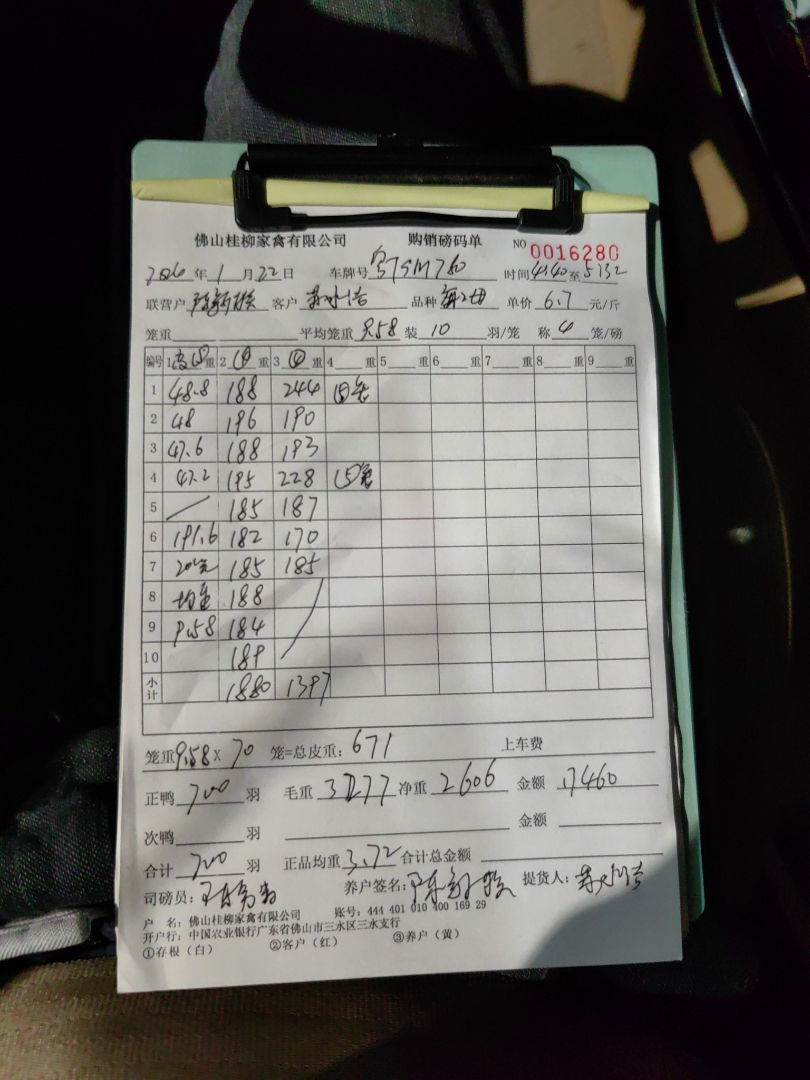 佛山桂柳家禽有限公司 购销磅码单 NO 0016280
2026年1月22日 车牌号 时间4:40至5:32
联营户 客户 品种 单价6.7元/斤
笼重 平均笼重9.58装10羽/笼 称4笼/磅
编号 1 重 2 ④ 重 3 ④ 重 4 重 5 重 6 重 7 重 8 重 9 重
1 48.8 188 244
2 48 196 190
3 47.6 188 193
4 47.2 195 228
5 / 185 187
6 191.6 182 170
7 185 185
8 188
9 9.58 184
10 189
小计 1880 1397
笼重9.58×70笼=总皮重:671 上车费
正鸭700羽 毛重3277净重2606 金额17460
次鸭 羽 金额
合计700羽 正品均重3.72合计总金额
司磅员: 养户签名: 提货人:
户 名:佛山桂柳家禽有限公司 账号:444 401 010 400 169 29
开户行:中国农业银行广东省佛山市三水区三水支行
①存根(白) ②客户(红) ③养户(黄)